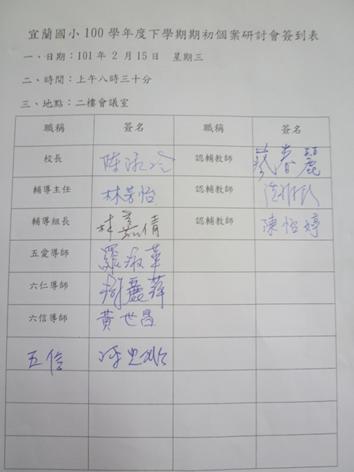 宜蘭國小100學年度下學期期初個案研討會簽到表
一、日期：101年2月15日　星期三
二、時間：上午八時三十分
三、地點：二樓會議室
職稱　簽名　職稱　簽名
校長　認輔教師　蔡春麗
輔導主任　林芳怡　認輔教師
輔導組長　林嘉倩　認輔教師　陳怡婷
五愛導師　羅淑華
六仁導師　謝麗萍
六信導師　黃世昌
五信